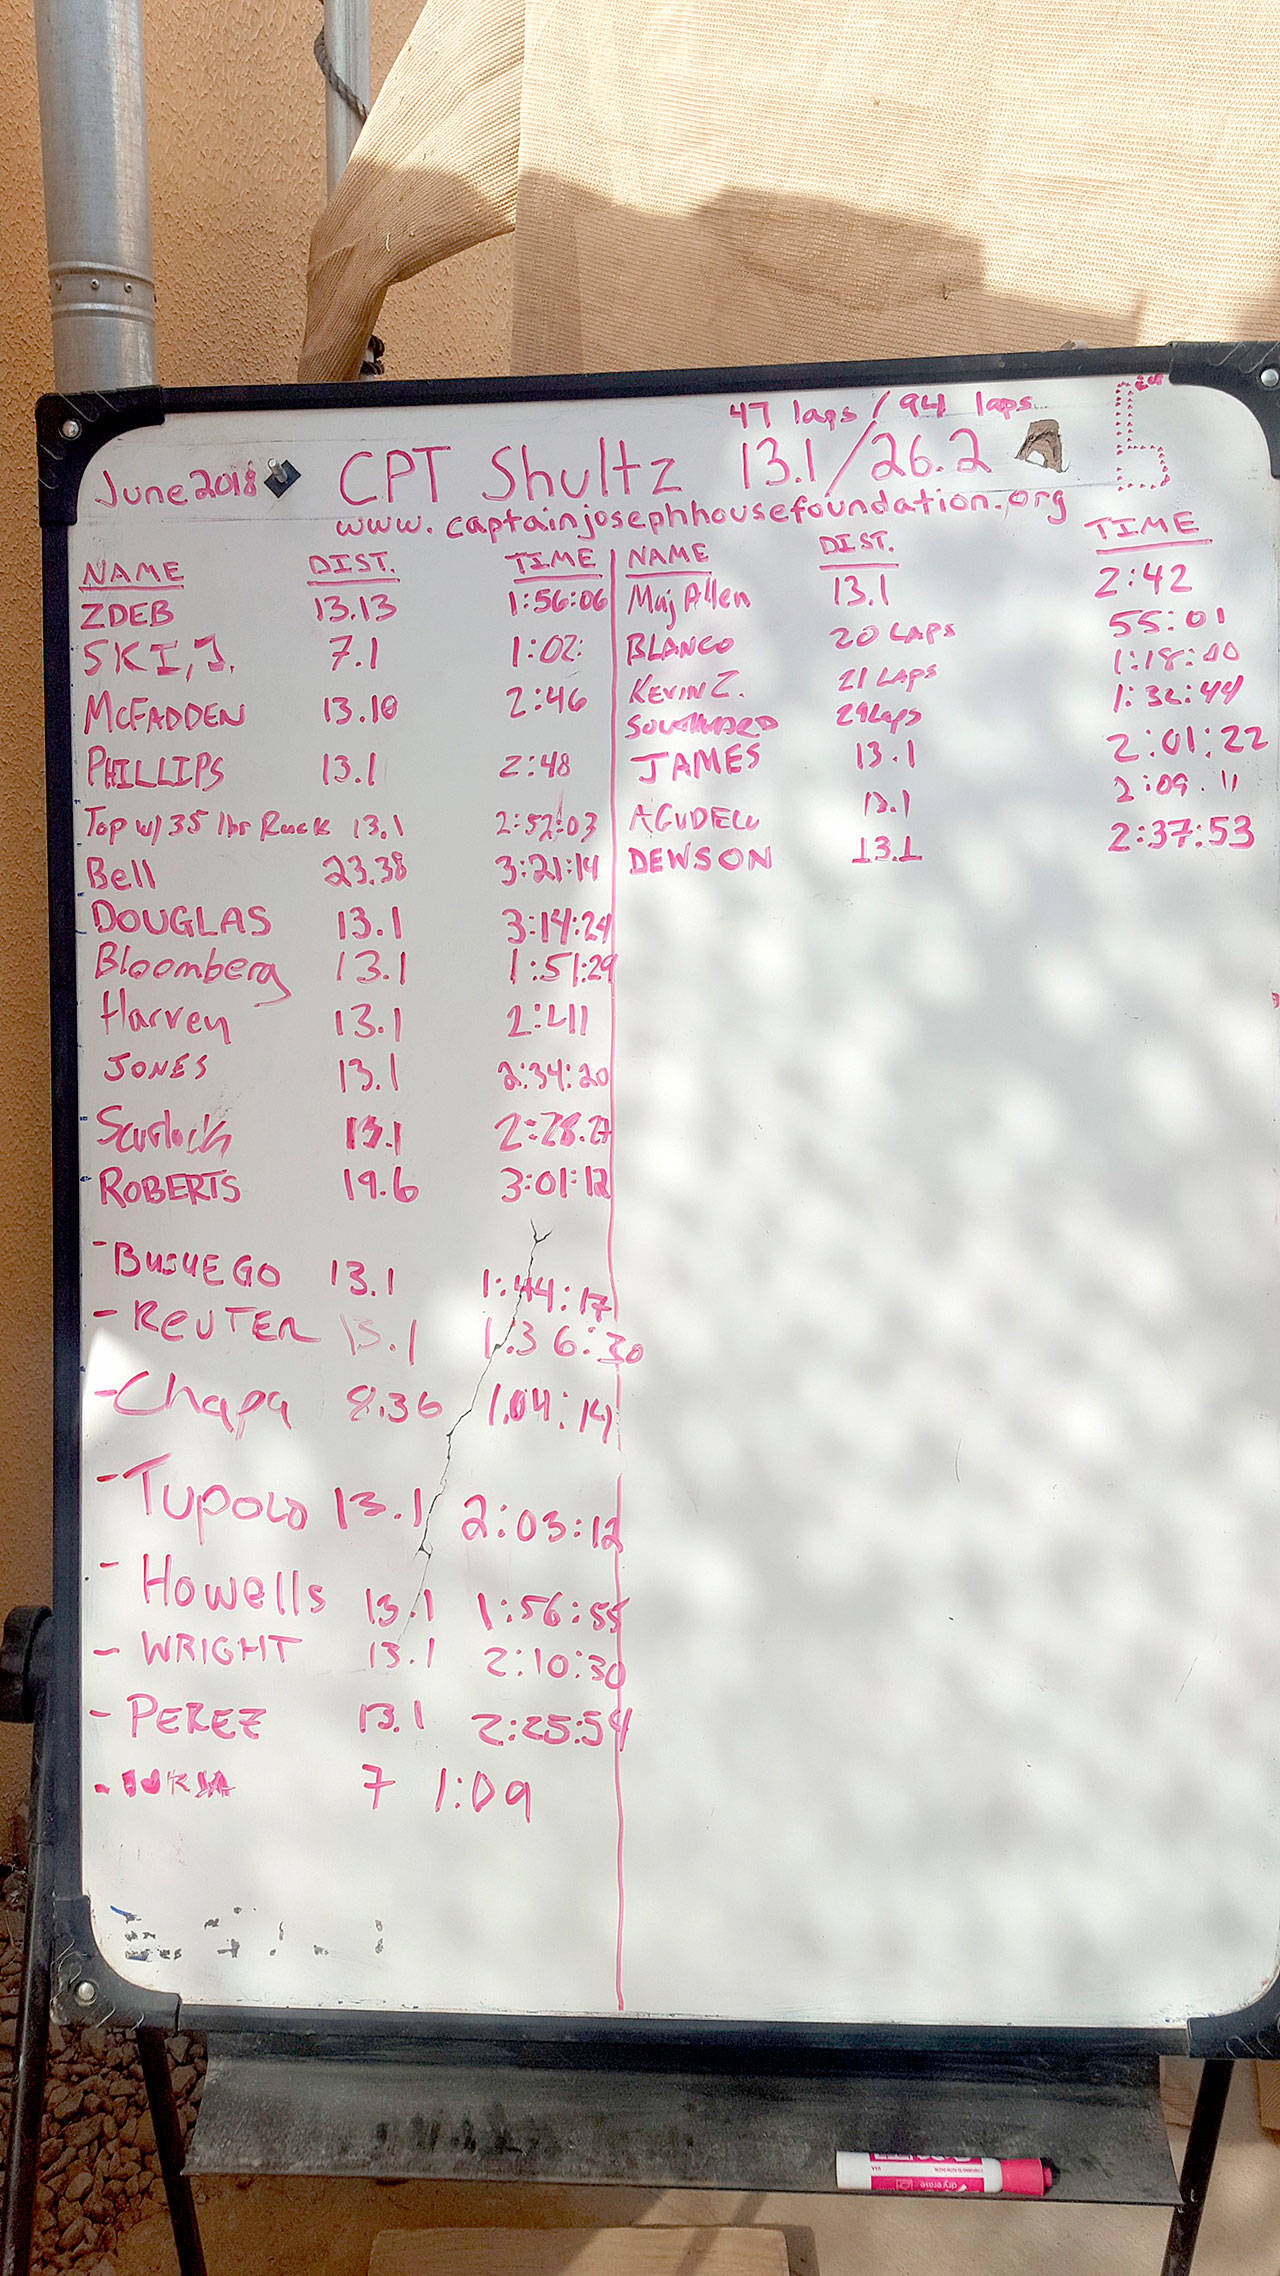 47 laps / 94 laps
June 2018 CPT Shultz 13.1/26.2
www.captainjosephhousefoundation.org
NAME DIST. TIME
ZDEB 13.13 1:56:06
SKI, J. 7.1 1:02:
McFADDEN 13.10 2:46
PHILLIPS 13.1 2:48
Top w/ 35 lbr Ruck 13.1 2:52:03
Bell 23.38 3:21:14
DOUGLAS 13.1 3:14:24
Bloomberg 13.1 1:51:29
Harvey 13.1 2:411
JONES 13.1 2:34:20
Scurlock 13.1 2:28.27
ROBERTS 19.6 3:01:12
- BUSUEGO 13.1 1:44:17
- REUTER 13.1 1:36:30
- Chapa 8.36 1:04:14
- TUPOLO 13.1 2:03:12
- Howells 13.1 1:56:55
- WRIGHT 13.1 2:10:30
- PEREZ 13.1 2:25:54
- 7 1:09
NAME DIST. TIME
Maj Allen 13.1 2:42
BLANCO 20 LAPS 55:01
KEVIN Z. 21 LAPS 1:18:00
SOUTHWARD 29 Laps 1:32:44
JAMES 13.1 2:01:22
AGUDELO 13.1 2:09.11
DEWSON 13.1 2:37:53
dry erase